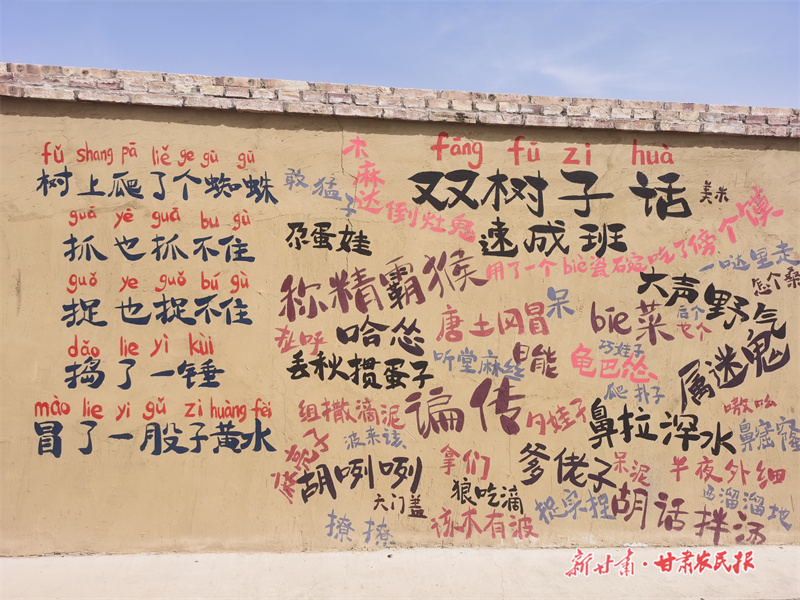 fǔ shang pā liě ge gù gū
树上爬了个蜘蛛
guā yě guā bu gù
抓也抓不住
guǒ ye guǒ bú gù
捉也捉不住
dǎo lie yì kùi
捣了一锤
mào lie yi gǔ zi huàng fèi
冒了一股子黄水
fāng fū zi huà
双树子话
速成班
木麻达
敢猛子
倒灶鬼
美米
尕蛋娃
用了一个biè瓷碗吃了傍个馍
一哒里走
怎个桑
称精霸猴
大声野气
在呼
哈怂
唐土网冒
呆
biē菜
后个
七个
丢秋掼蛋子
听堂麻丝
日能
龟巴怂
巧娃子
爬扑子
属迷鬼
组撒滴泥
谝传
月娃子
鼻拉深水
嗷吆
鼻窟窿
波来该
胡咧咧
大门盖
拿们
狼吃滴
爹佬子
呆泥
半夜外细
西溜溜地
撩撩
该木有波
捉家捏
胡话拌汤
新甘肃·甘肃农民报